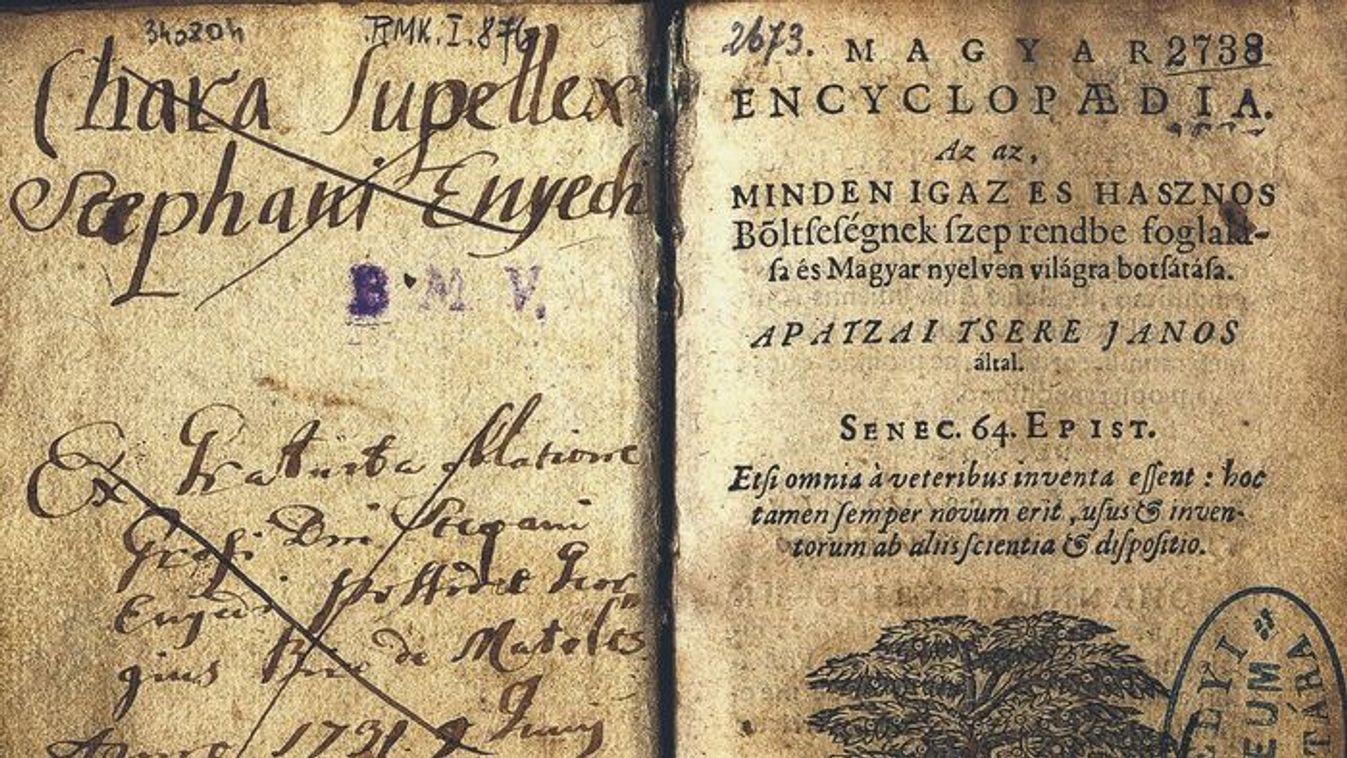 340204
RMK. I. 876
Chara Supellex
Stephani Enyedi
B. M V.
Ex Gratuita Collatione
Dni Stephani
Enyedi possidet Geor
gius de
Anno 1731. 9 Junij
2673.
MAGYAR 2738
ENCYCLOPÆDIA.
Az az,
MINDEN IGAZ ES HASZNOS
Bőltſeſégnek ſzep rendbe foglalá-
ſa és Magyar nyelven világra botſátáſa.
APATZAI TSERE JANOS
által.
SENEC. 64. EPIST.
Etſi omnia à veteribus inventa eſſent : hoc
tamen ſemper novum erit, uſus & inven-
torum ab aliis ſcientia & diſpoſitio.